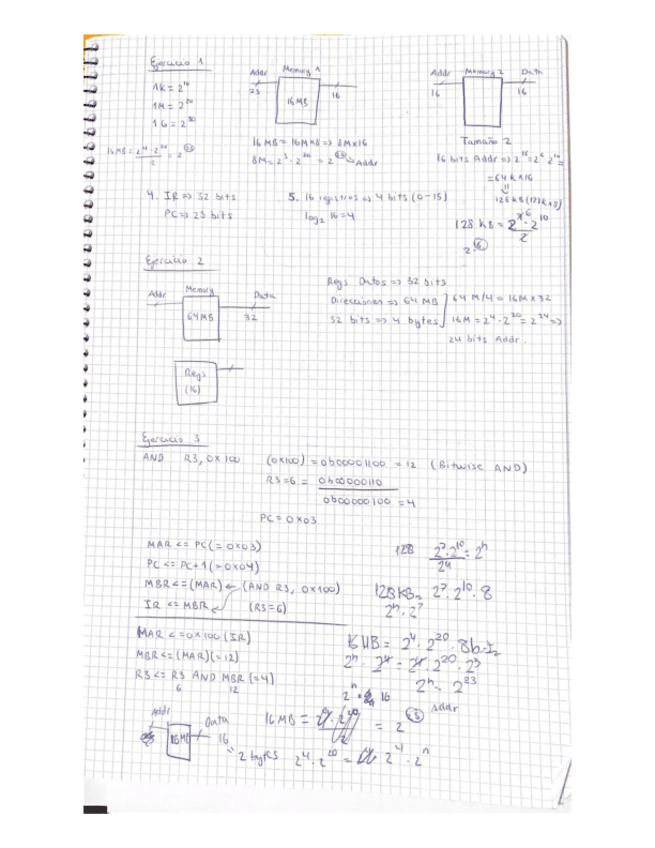 Ejercicio 1
1K = 2^10
1M = 2^20
1G = 2^30
Addr Memory 1
23 16MB 16
Addr Memory 2 Data
16 16
16MB = 2^4 · 2^20 / 2 = 2^23
16 MB = 16M x 8 => 8M x 16
8M = 2^3 · 2^20 = 2^23 -> Addr
Tamaño 2
16 bits Addr => 2^16 = 2^6 2^10 =
= 64 K x 16
128 KB (128k x 8)
128 KB = 2^6 · 2^10 / 2
2^16
4. IR => 32 bits
PC => 23 bits
5. 16 registros => 4 bits (0-15)
log2 16 = 4
Ejercicio 2
Addr Memory Data
64MB 32
Regs
(16)
Regs Datos => 32 bits
Direcciones => 64 MB
32 bits => 4 bytes
64 M/4 = 16M x 32
16M = 2^4 · 2^20 = 2^24 =>
24 bits Addr.
Ejercicio 3
AND R3, 0x100 (0x100) = 0b00001100 = 12 (Bitwise AND)
R3 = 6 = 0b00000110
0b00000100 = 4
PC = 0x03
MAR <= PC (= 0x03)
PC <= PC+1 (= 0x04)
MBR <= (MAR) <- (AND R3, 0x100)
IR <= MBR (R3=6)
MAR <= 0x100 (IR)
MBR <= (MAR) (= 12)
R3 <= R3 AND MBR (= 4)
6 12
128 2^7 · 2^10 / 24 = 2^n
128KB = 2^7 · 2^10 · 8
2^n · 2^7
16MB = 2^4 · 2^20 · 8
2^n · 2^4 = 2^4 · 2^20 · 2^3
2^n = 2^23
Addr Data
16MB 16
2 bytes
16MB = 2^4 · 2^20 / 2 = 2^23 Addr
2^4 · 2^20 = 2^4 · 2^n